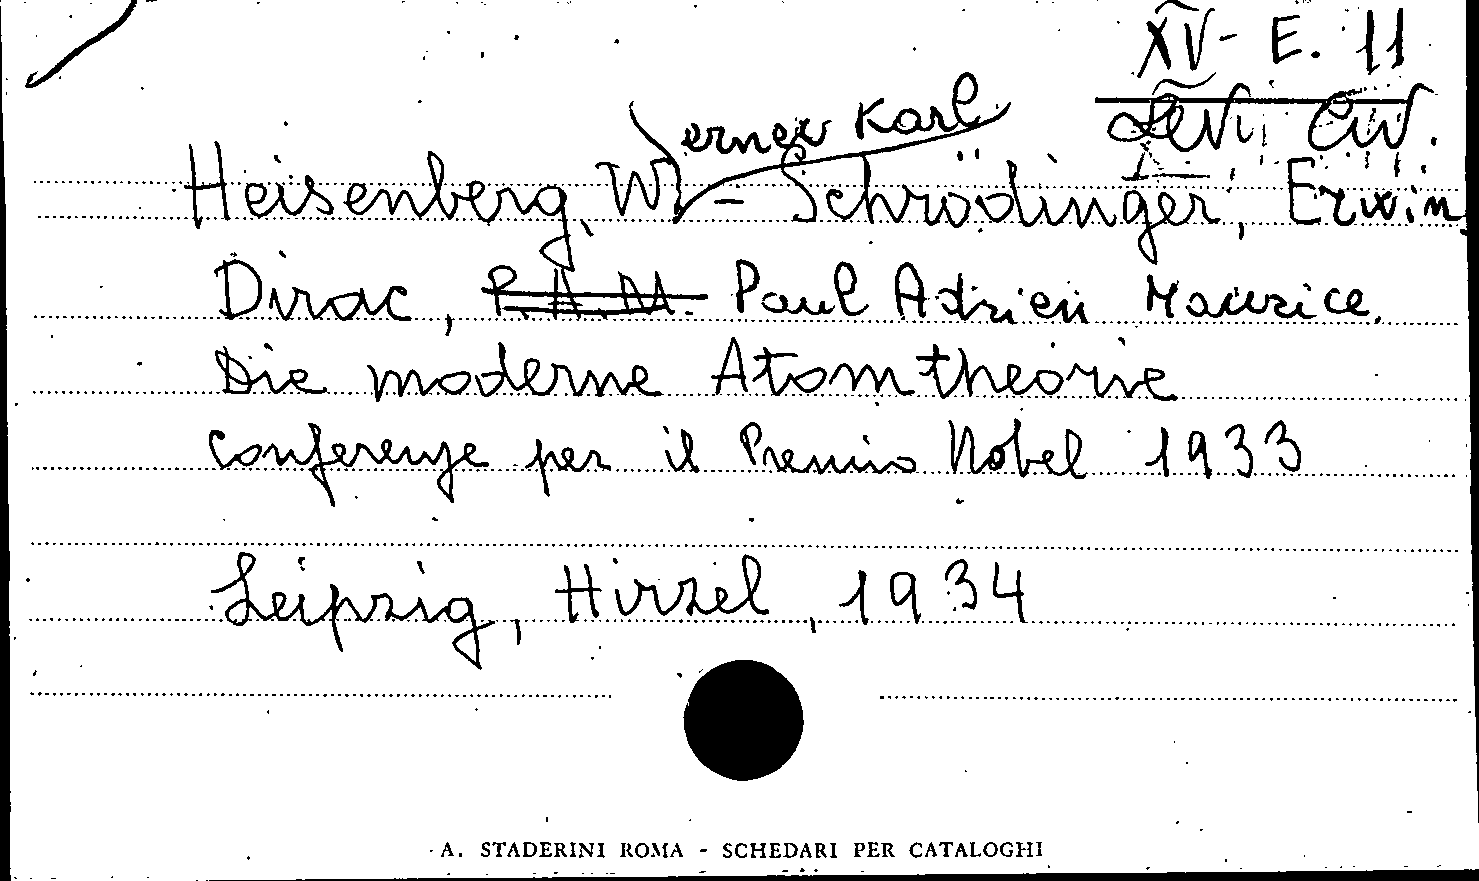 XV- E. 11
Levi Civ.
erner Karl
Heisenberg, W - Schrödinger, Erwin
Dirac, P. A. M. Paul Adrien Maurice.
Die moderne Atomtheorie
conferenze per il Premio Nobel 1933
Leipzig, Hirzel, 1934
A. STADERINI ROMA - SCHEDARI PER CATALOGHI